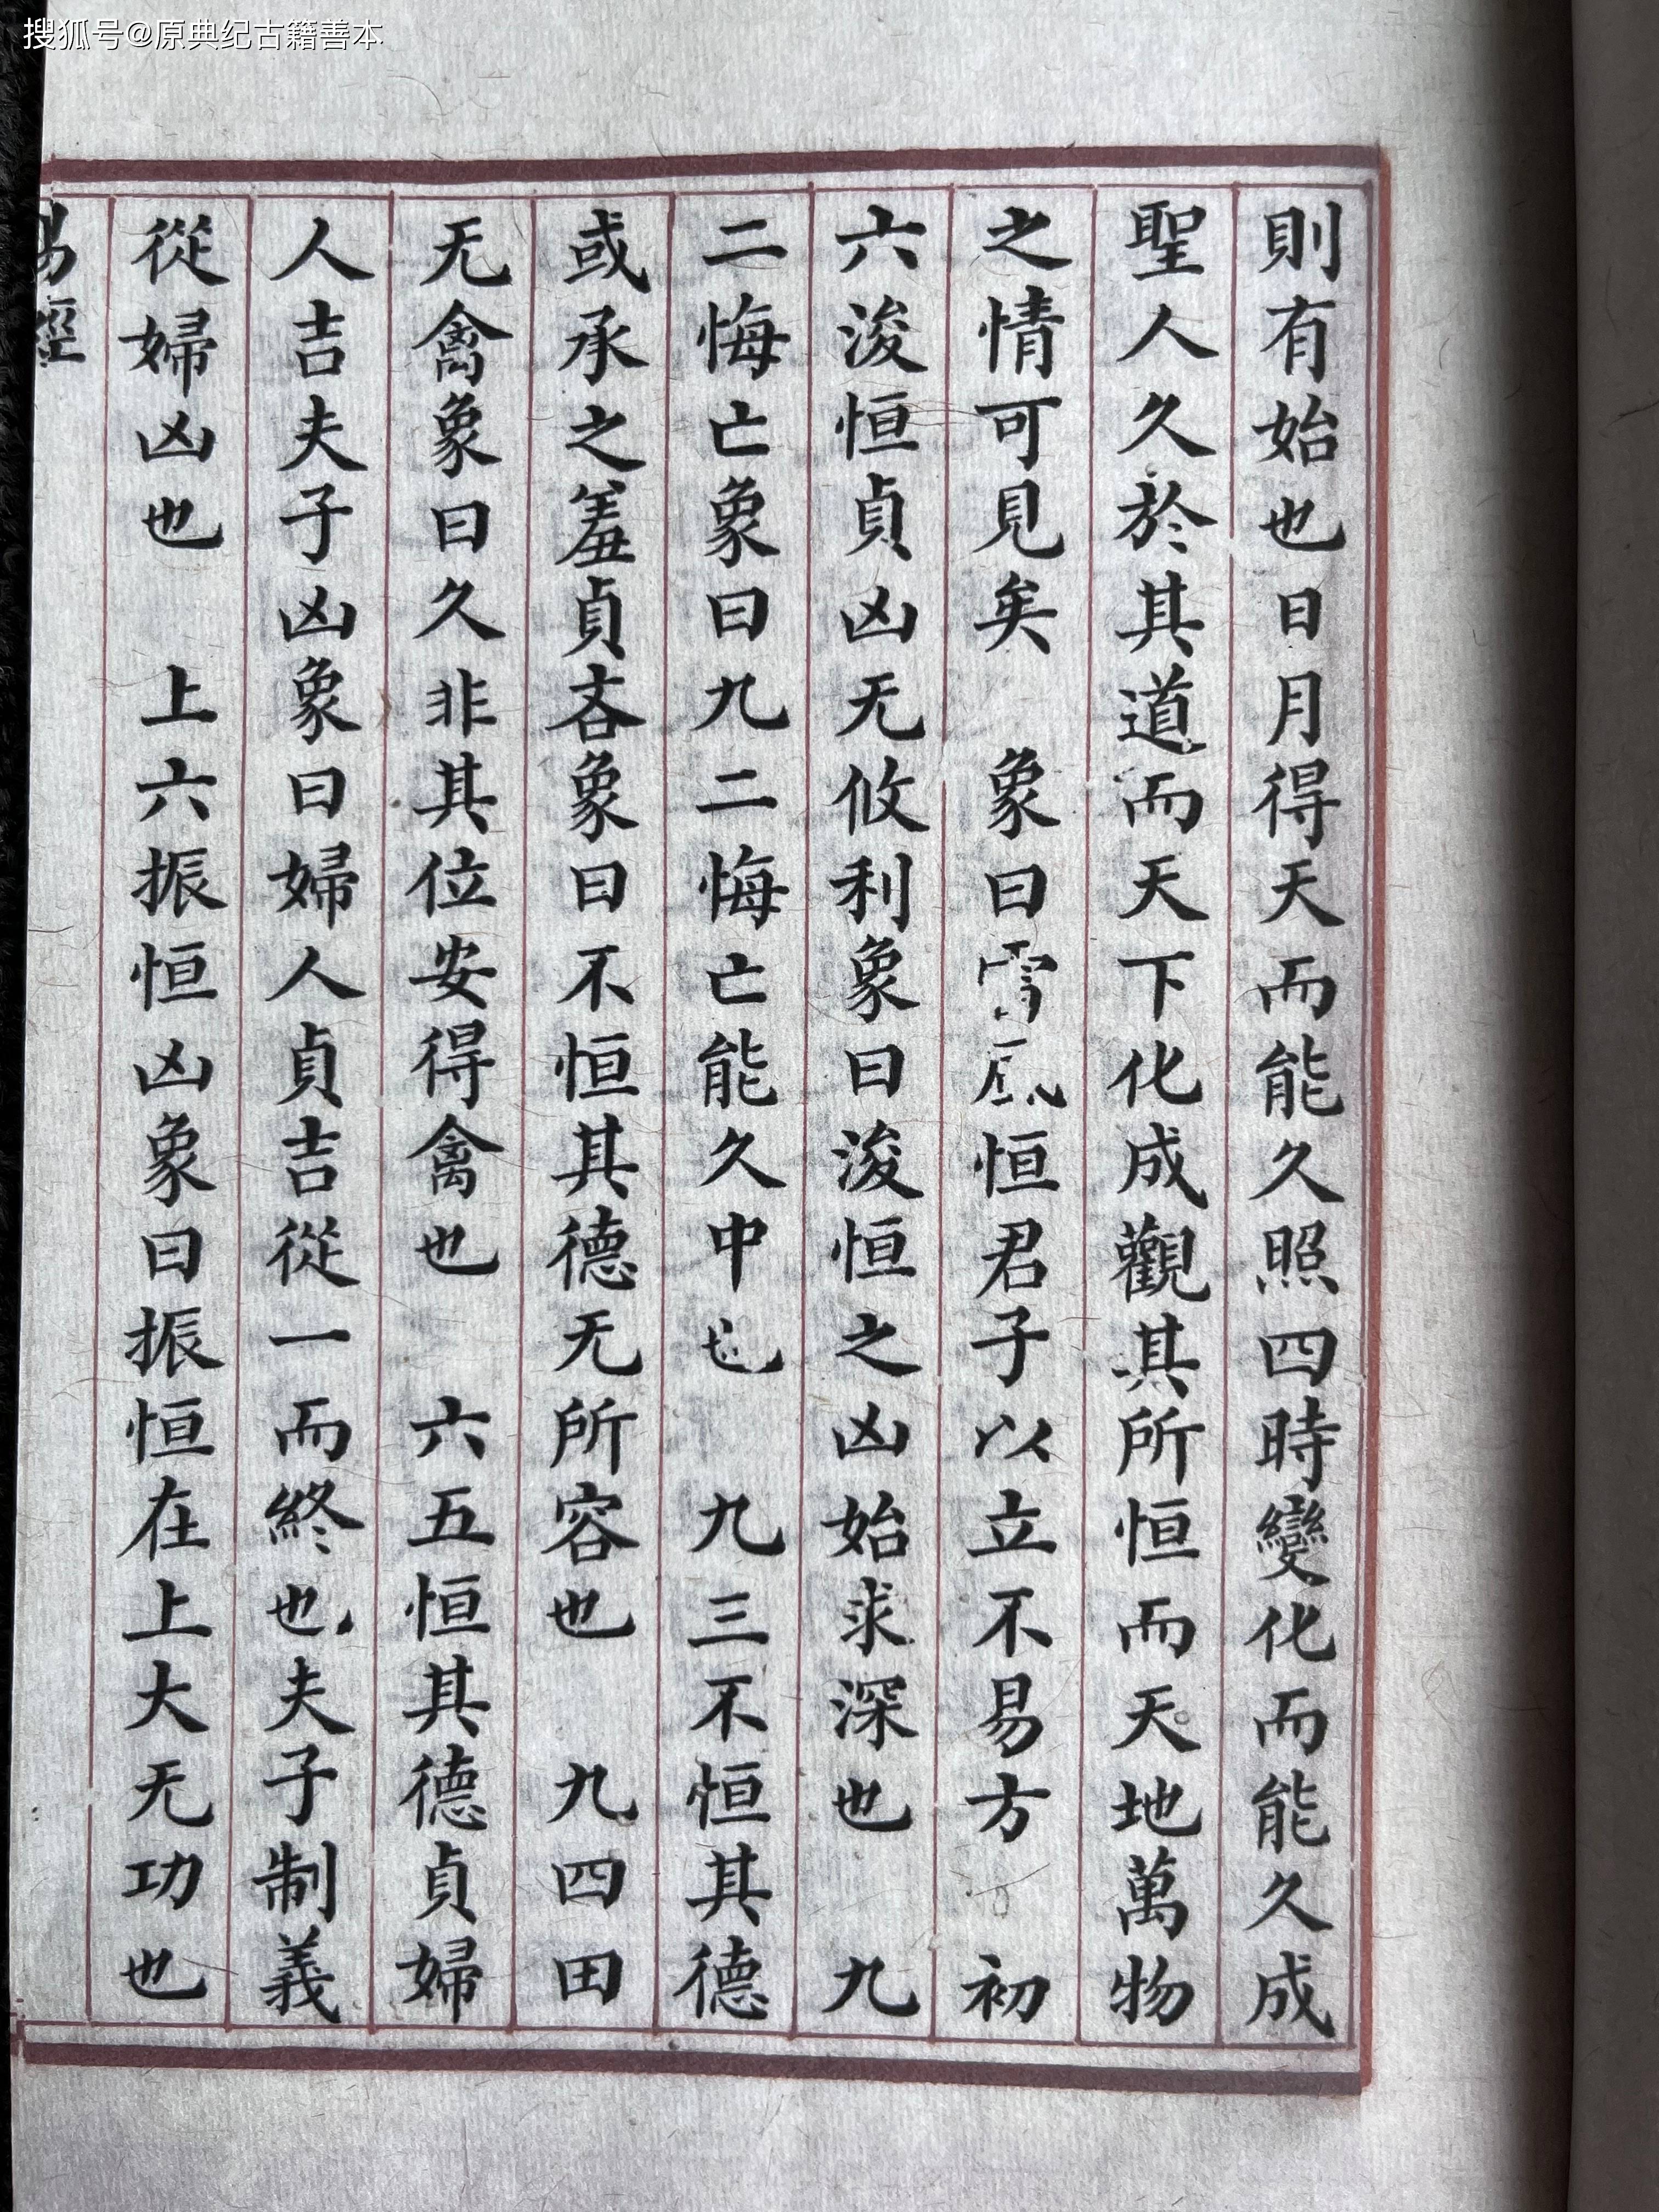 搜狐号@原典纪古籍善本
則有始也日月得天而能久照四時變化而能久成
聖人久於其道而天下化成觀其所恒而天地萬物
之情可見矣　象曰雷風恒君子以立不易方　初
六浚恒貞凶无攸利象曰浚恒之凶始求深也　九
二悔亡象曰九二悔亡能久中也　九三不恒其德
或承之羞貞吝象曰不恒其德无所容也　九四田
无禽象曰久非其位安得禽也　六五恒其德貞婦
人吉夫子凶象曰婦人貞吉從一而終也夫子制義
從婦凶也　上六振恒凶象曰振恒在上大无功也
易經